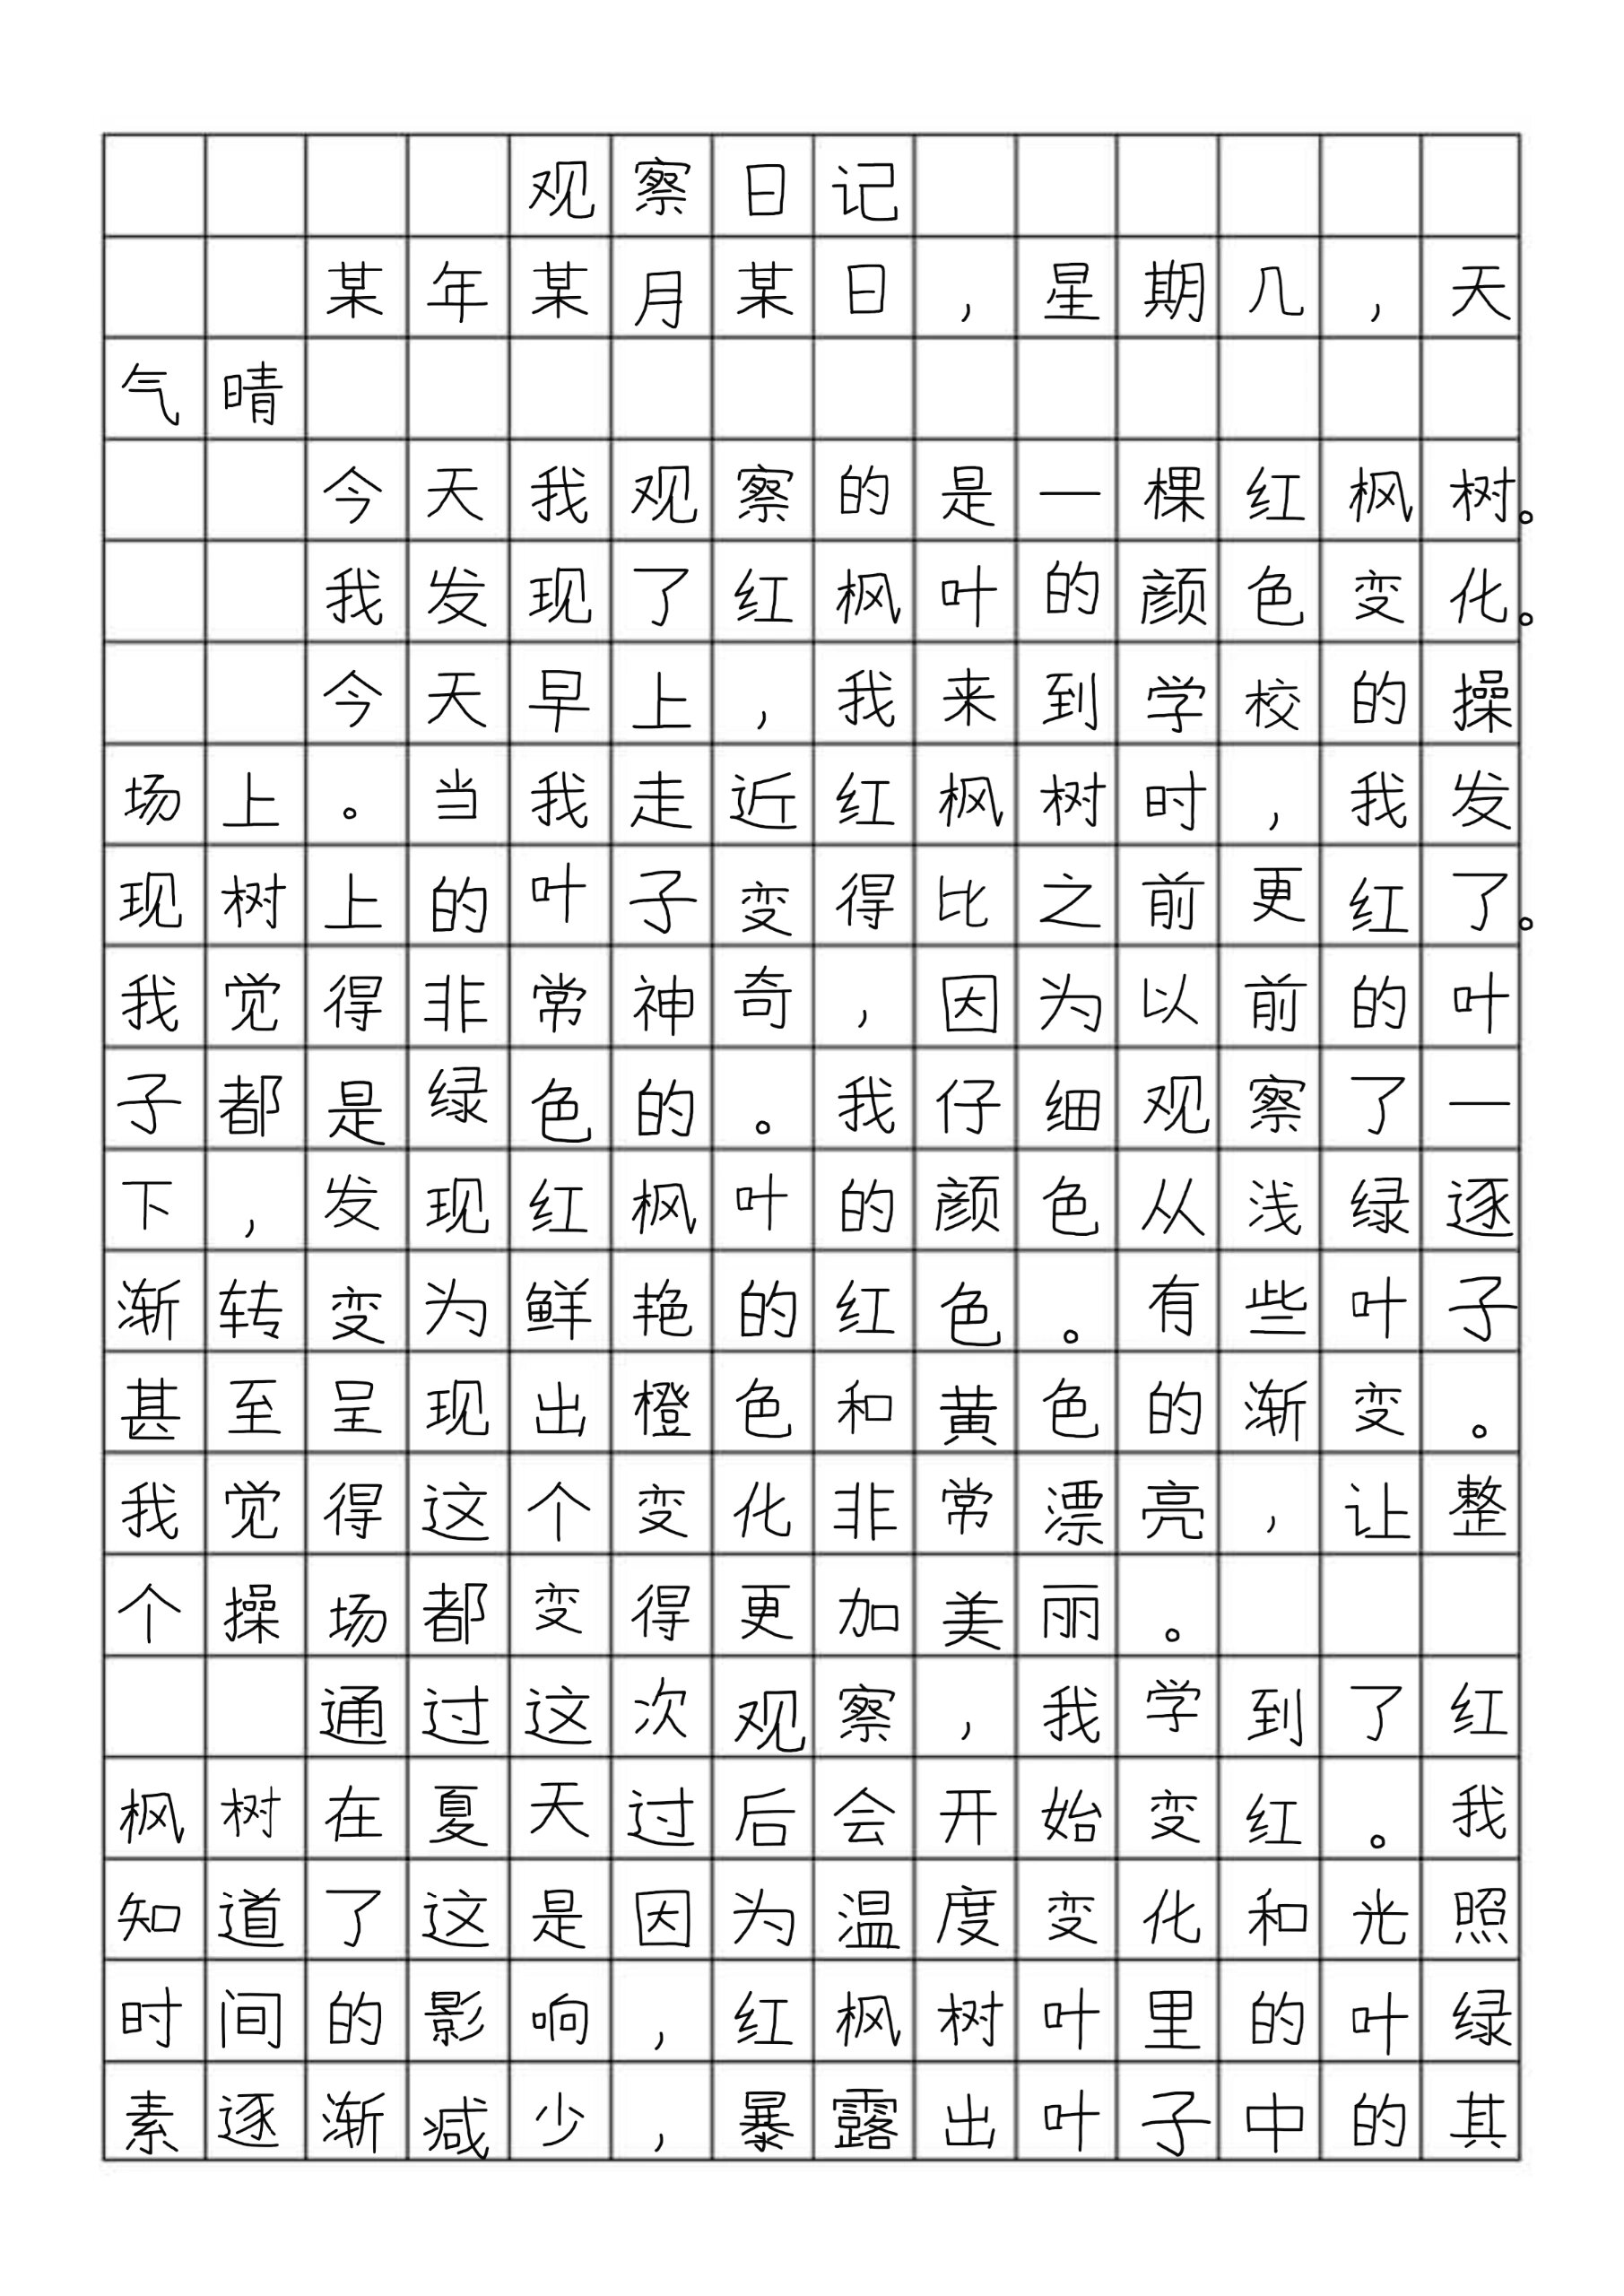 观察日记
某年某月某日，星期几，天
气晴
今天我观察的是一棵红枫树。
我发现了红枫叶的颜色变化。
今天早上，我来到学校的操
场上。当我走近红枫树时，我发
现树上的叶子变得比之前更红了。
我觉得非常神奇，因为以前的叶
子都是绿色的。我仔细观察了一
下，发现红枫叶的颜色从浅绿逐
渐转变为鲜艳的红色。有些叶子
甚至呈现出橙色和黄色的渐变。
我觉得这个变化非常漂亮，让整
个操场都变得更加美丽。
通过这次观察，我学到了红
枫树在夏天过后会开始变红。我
知道了这是因为温度变化和光照
时间的影响，红枫树叶里的叶绿
素逐渐减少，暴露出叶子中的其